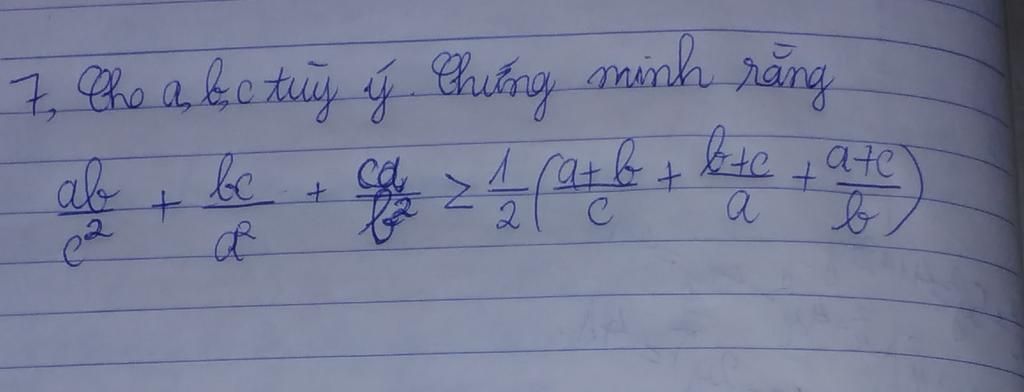 7, Cho a, b, c tùy ý. Chứng minh rằng
ab/c² + bc/a² + ca/b² ≥ 1/2 (a+b/c + b+c/a + a+c/b)